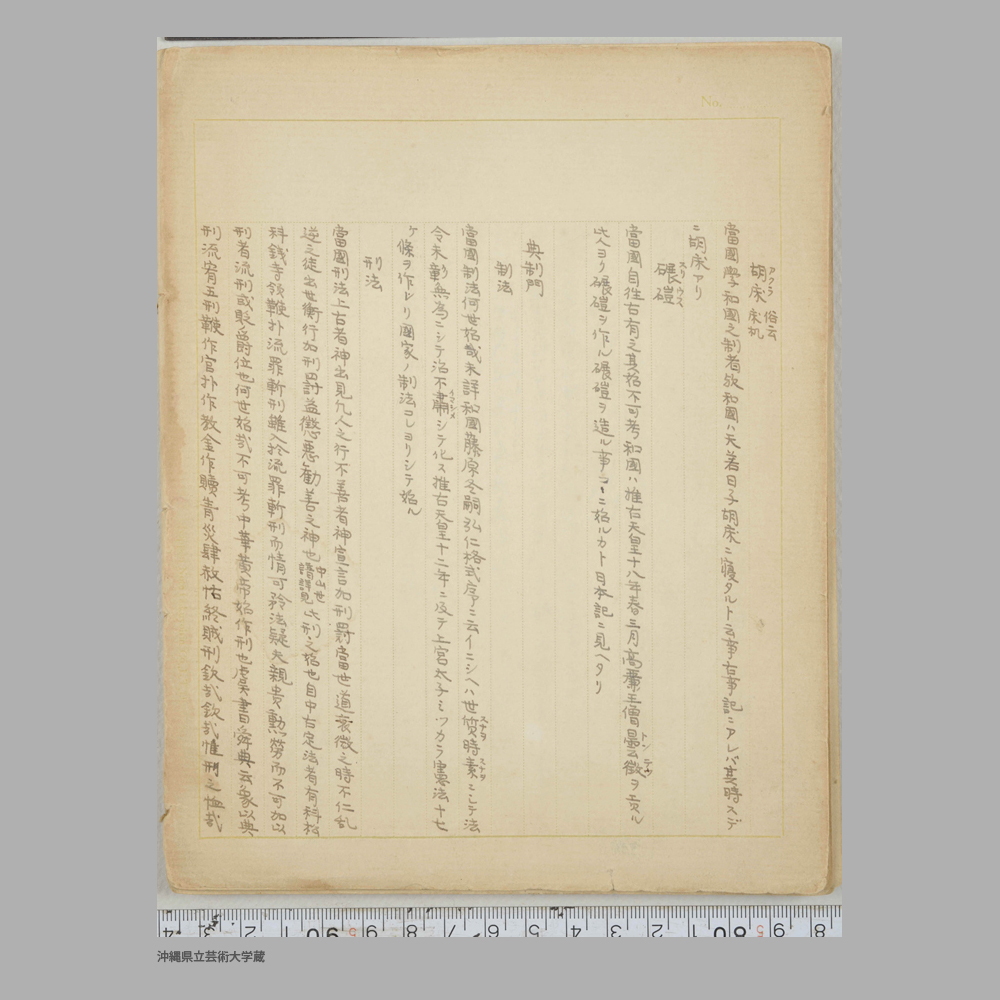 No.
胡床 俗云床机
アクラ
當國學和國之制者欤和國ハ天若日子胡床ニ寢タルト云事古事記ニアレバ其時スデ
ニ胡床アリ
碾磑
スリウス
當國自往古有之其始不可考和國ハ推古天皇十八年春三月高麗王僧曇徴ヲ貢ル
トン テウ
此人ヨク碾磑ヲ作ル碾磑ヲ造ル事コヽニ始ルカト日本記ニ見ヘタリ
典制門
制法
當國制法何世始哉未詳和國藤原冬嗣弘仁格式序ニ云イニシヘハ世質時素ニシテ法
スナヲ スナヲ
令未彰無為ニシテ治不肅シテ化ス推古天皇十二年ニ及テ上宮太子ミツカラ憲法十七
イマシメ
ケ條ヲ作レリ國家ノ制法コレヨリシテ始ル
刑法
當國刑法上古者神出見凢人之行不善者神宣言加刑罸當世道衰微之時不仁乱
逆之徒出世衡行加刑罸益懲悪勧善之神也中山世譜詳見此刑之始也自中古定法者有科松
科銭寺領鞭扑流罪斬刑雖入於流罪斬刑而情可矜法疑夫親貴勲勞而不可加以
刑者流刑或貶爵位也何世始哉不可考中華黄帝始作刑也虞書舜典云象以典
刑流宥五刑鞭作官扑作教金作贖青災肆赦怙終賊刑欽哉欽哉惟刑之恤哉
4 3 2 1 90 9 8 7 6 5 4 3 2 1 80 9 8
沖縄県立芸術大学蔵